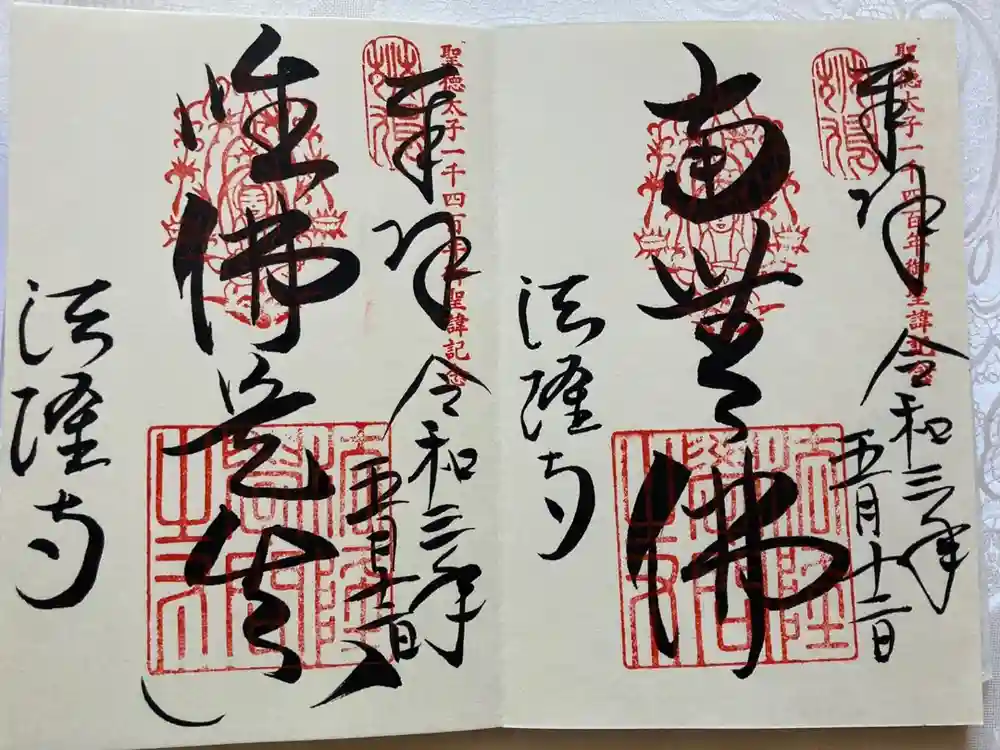 聖徳太子一千四百年御聖諱記念
奉拝
令和三年
五月十二日
南無佛
法隆寺
聖徳太子一千四百年御聖諱記念
奉拝
令和三年
五月十二日
唯佛是真
法隆寺